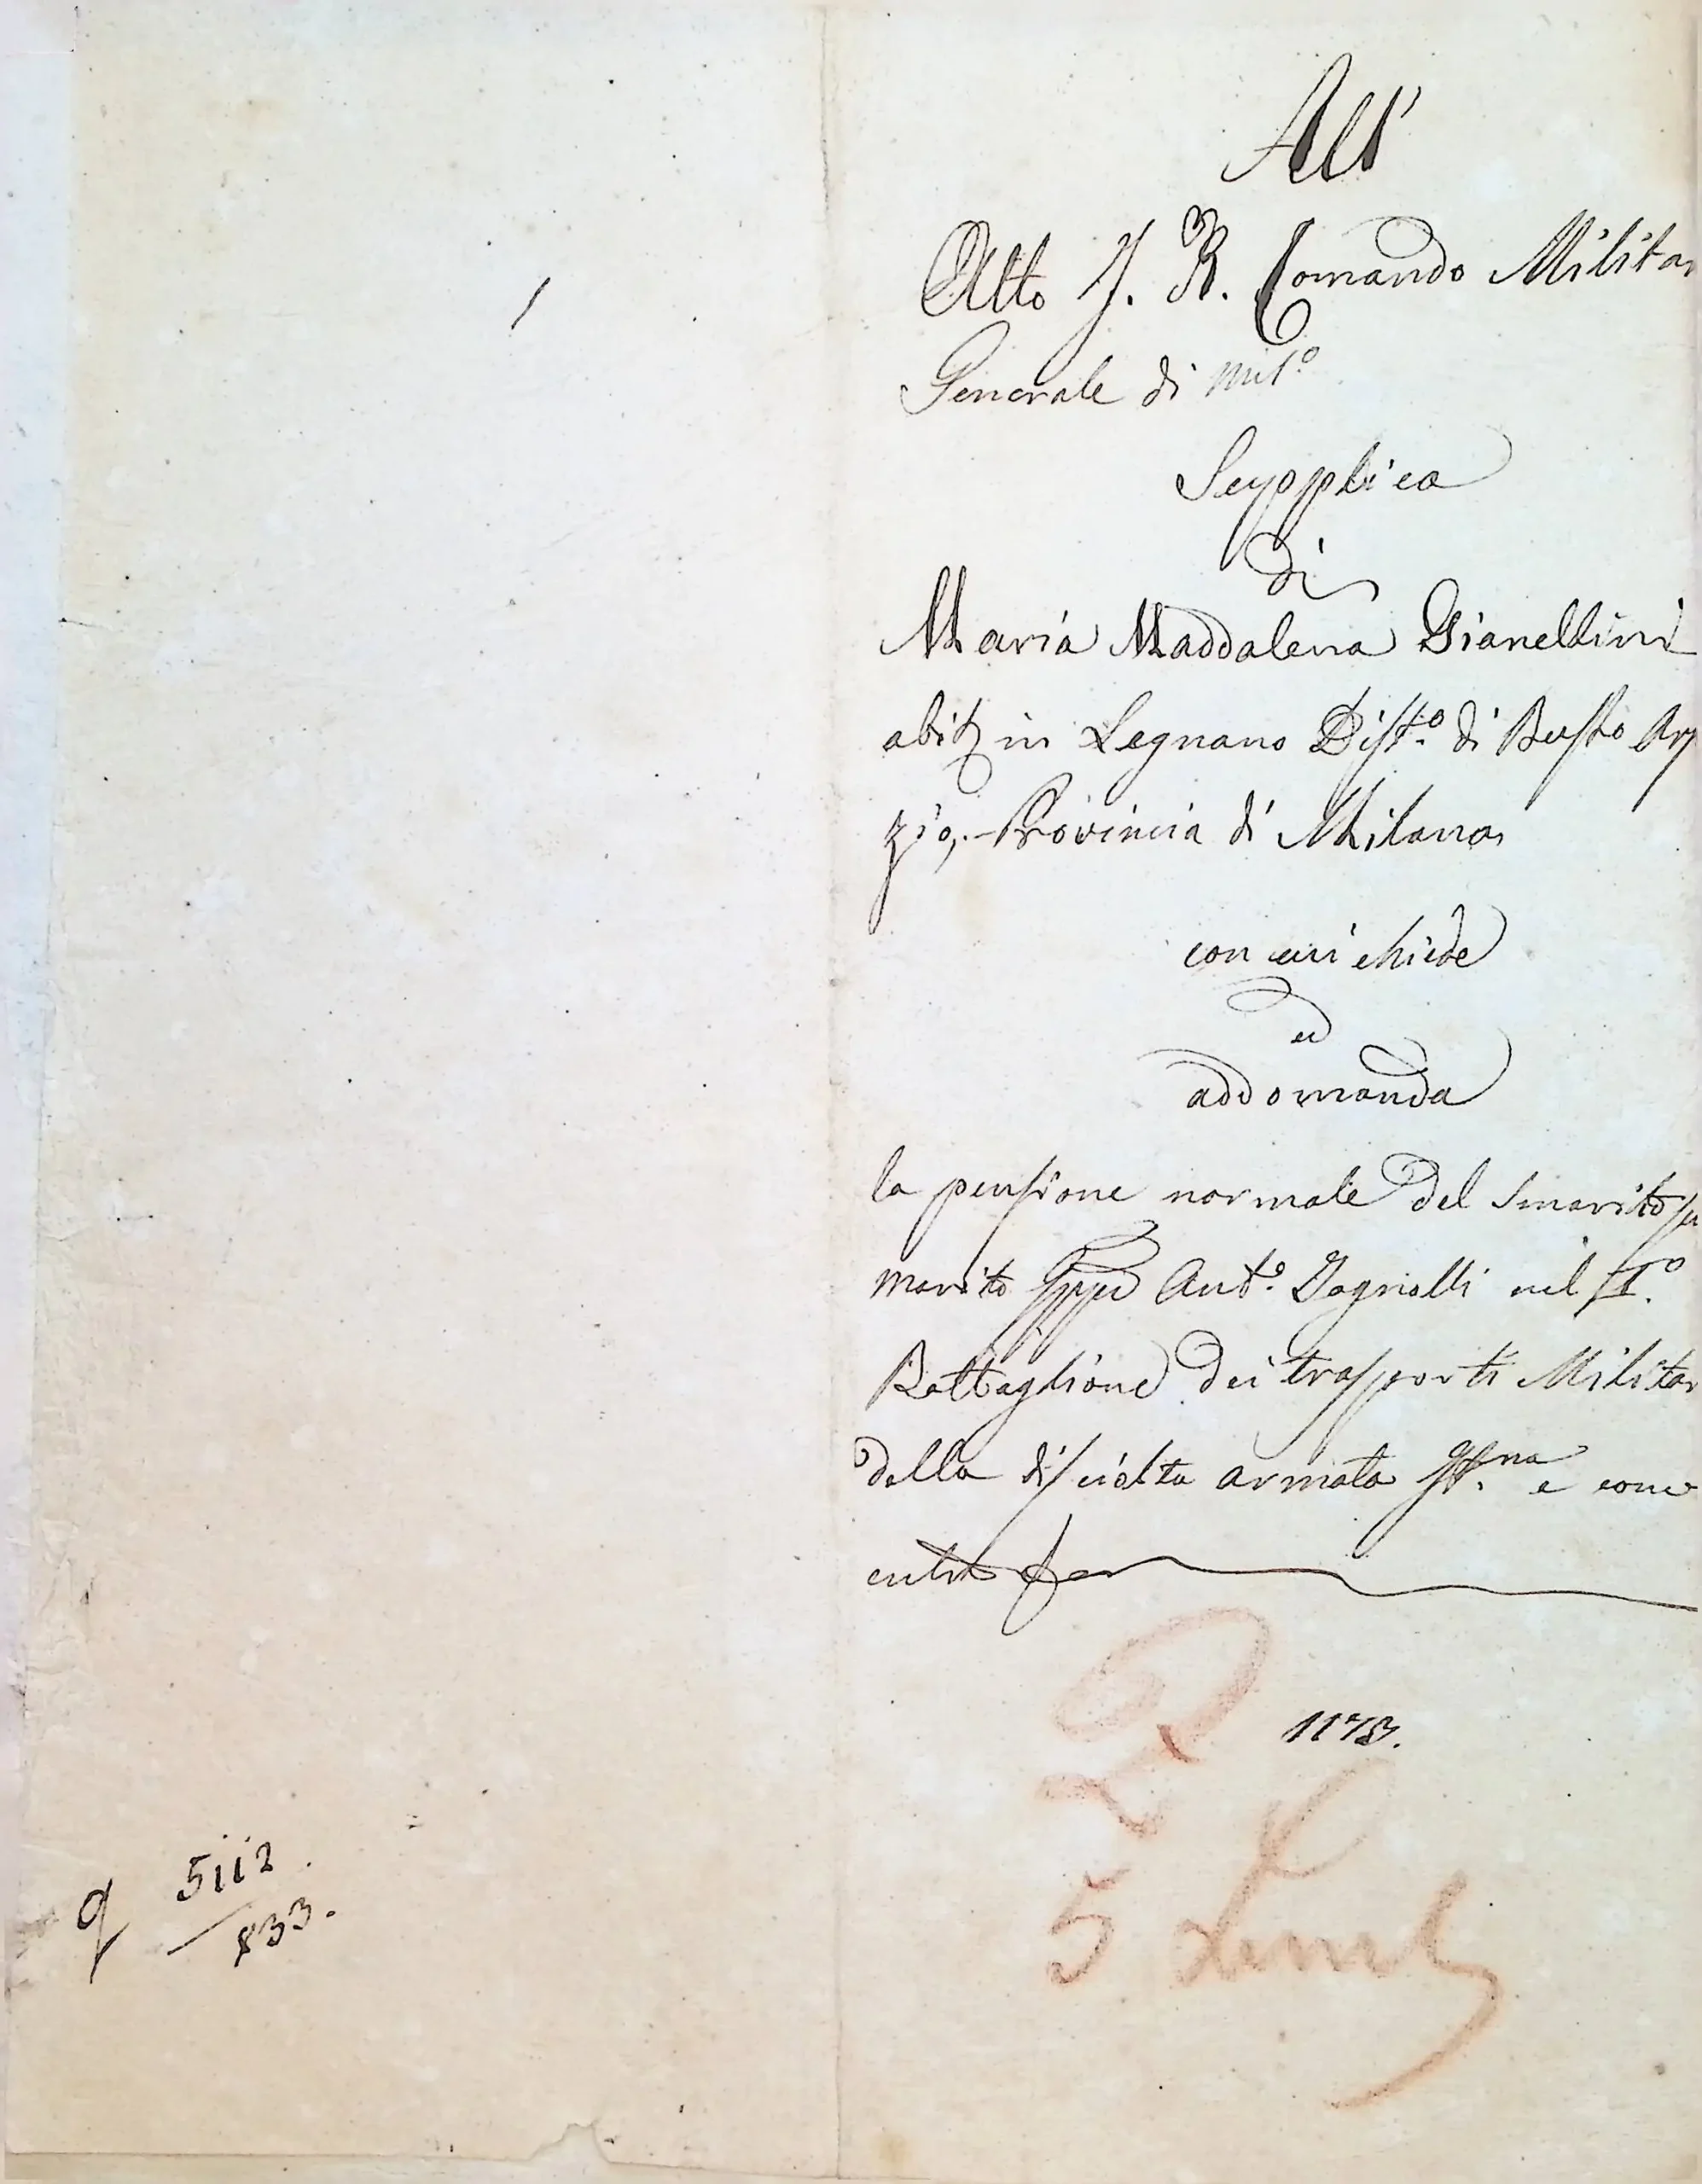 All'
Alto I. R. Comando Militar
Generale di Mil.o
Supplica
di
Maria Maddalena Gianellini
abit in Legnano Dist.o di Busto Ar
zio, Provincia di Milano
con cui chiede
ed
addomanda
la pensione normale del smarito su
marito Gppe Ant.o Gagnolli nel I.o
Battaglione dei trasporti Militar
della disciolta armata It.na e come
entro
1173.
5
q 5112.
833.